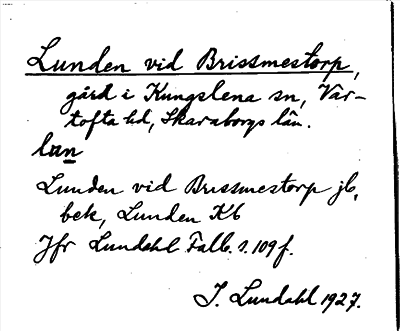 Lunden vid Brissmestorp,
gård i Kungslena sn, Var-
tofta hd, Skaraborgs län.
lun
Lunden vid Brissmestorp jb,
bek, Lunden Kb
Jfr Lundahl Falb. s. 109 f.
I. Lundahl 1927.